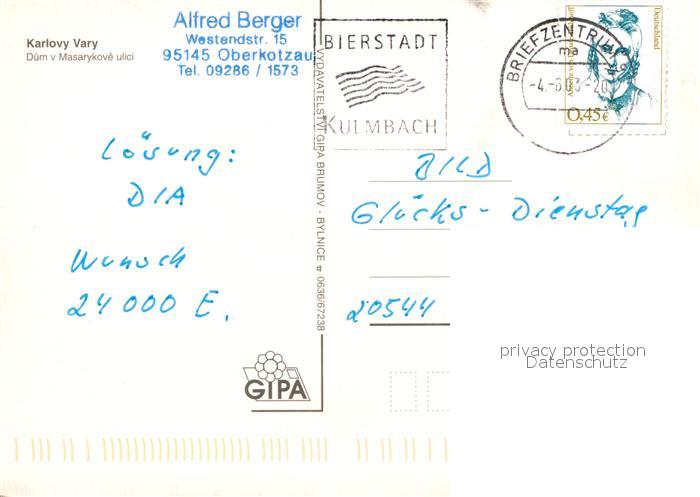 Karlovy Vary
Dům v Masarykově ulici
Alfred Berger
Westendstr. 15
95145 Oberkotzau
Tel. 09286 / 1573
BIERSTADT
KULMBACH
BRIEFZENTRUM
ma
-4.-8.03-20
Deutschland
0,45€
VYDAVATELSTVÍ GIPA BRUMOV - BYLNICE ☎ 0636/67238
Lösung:
DIA
Wunsch
24 000 E.
BILD
Glücks-Dienstag
20544
GIPA
privacy protection
Datenschutz